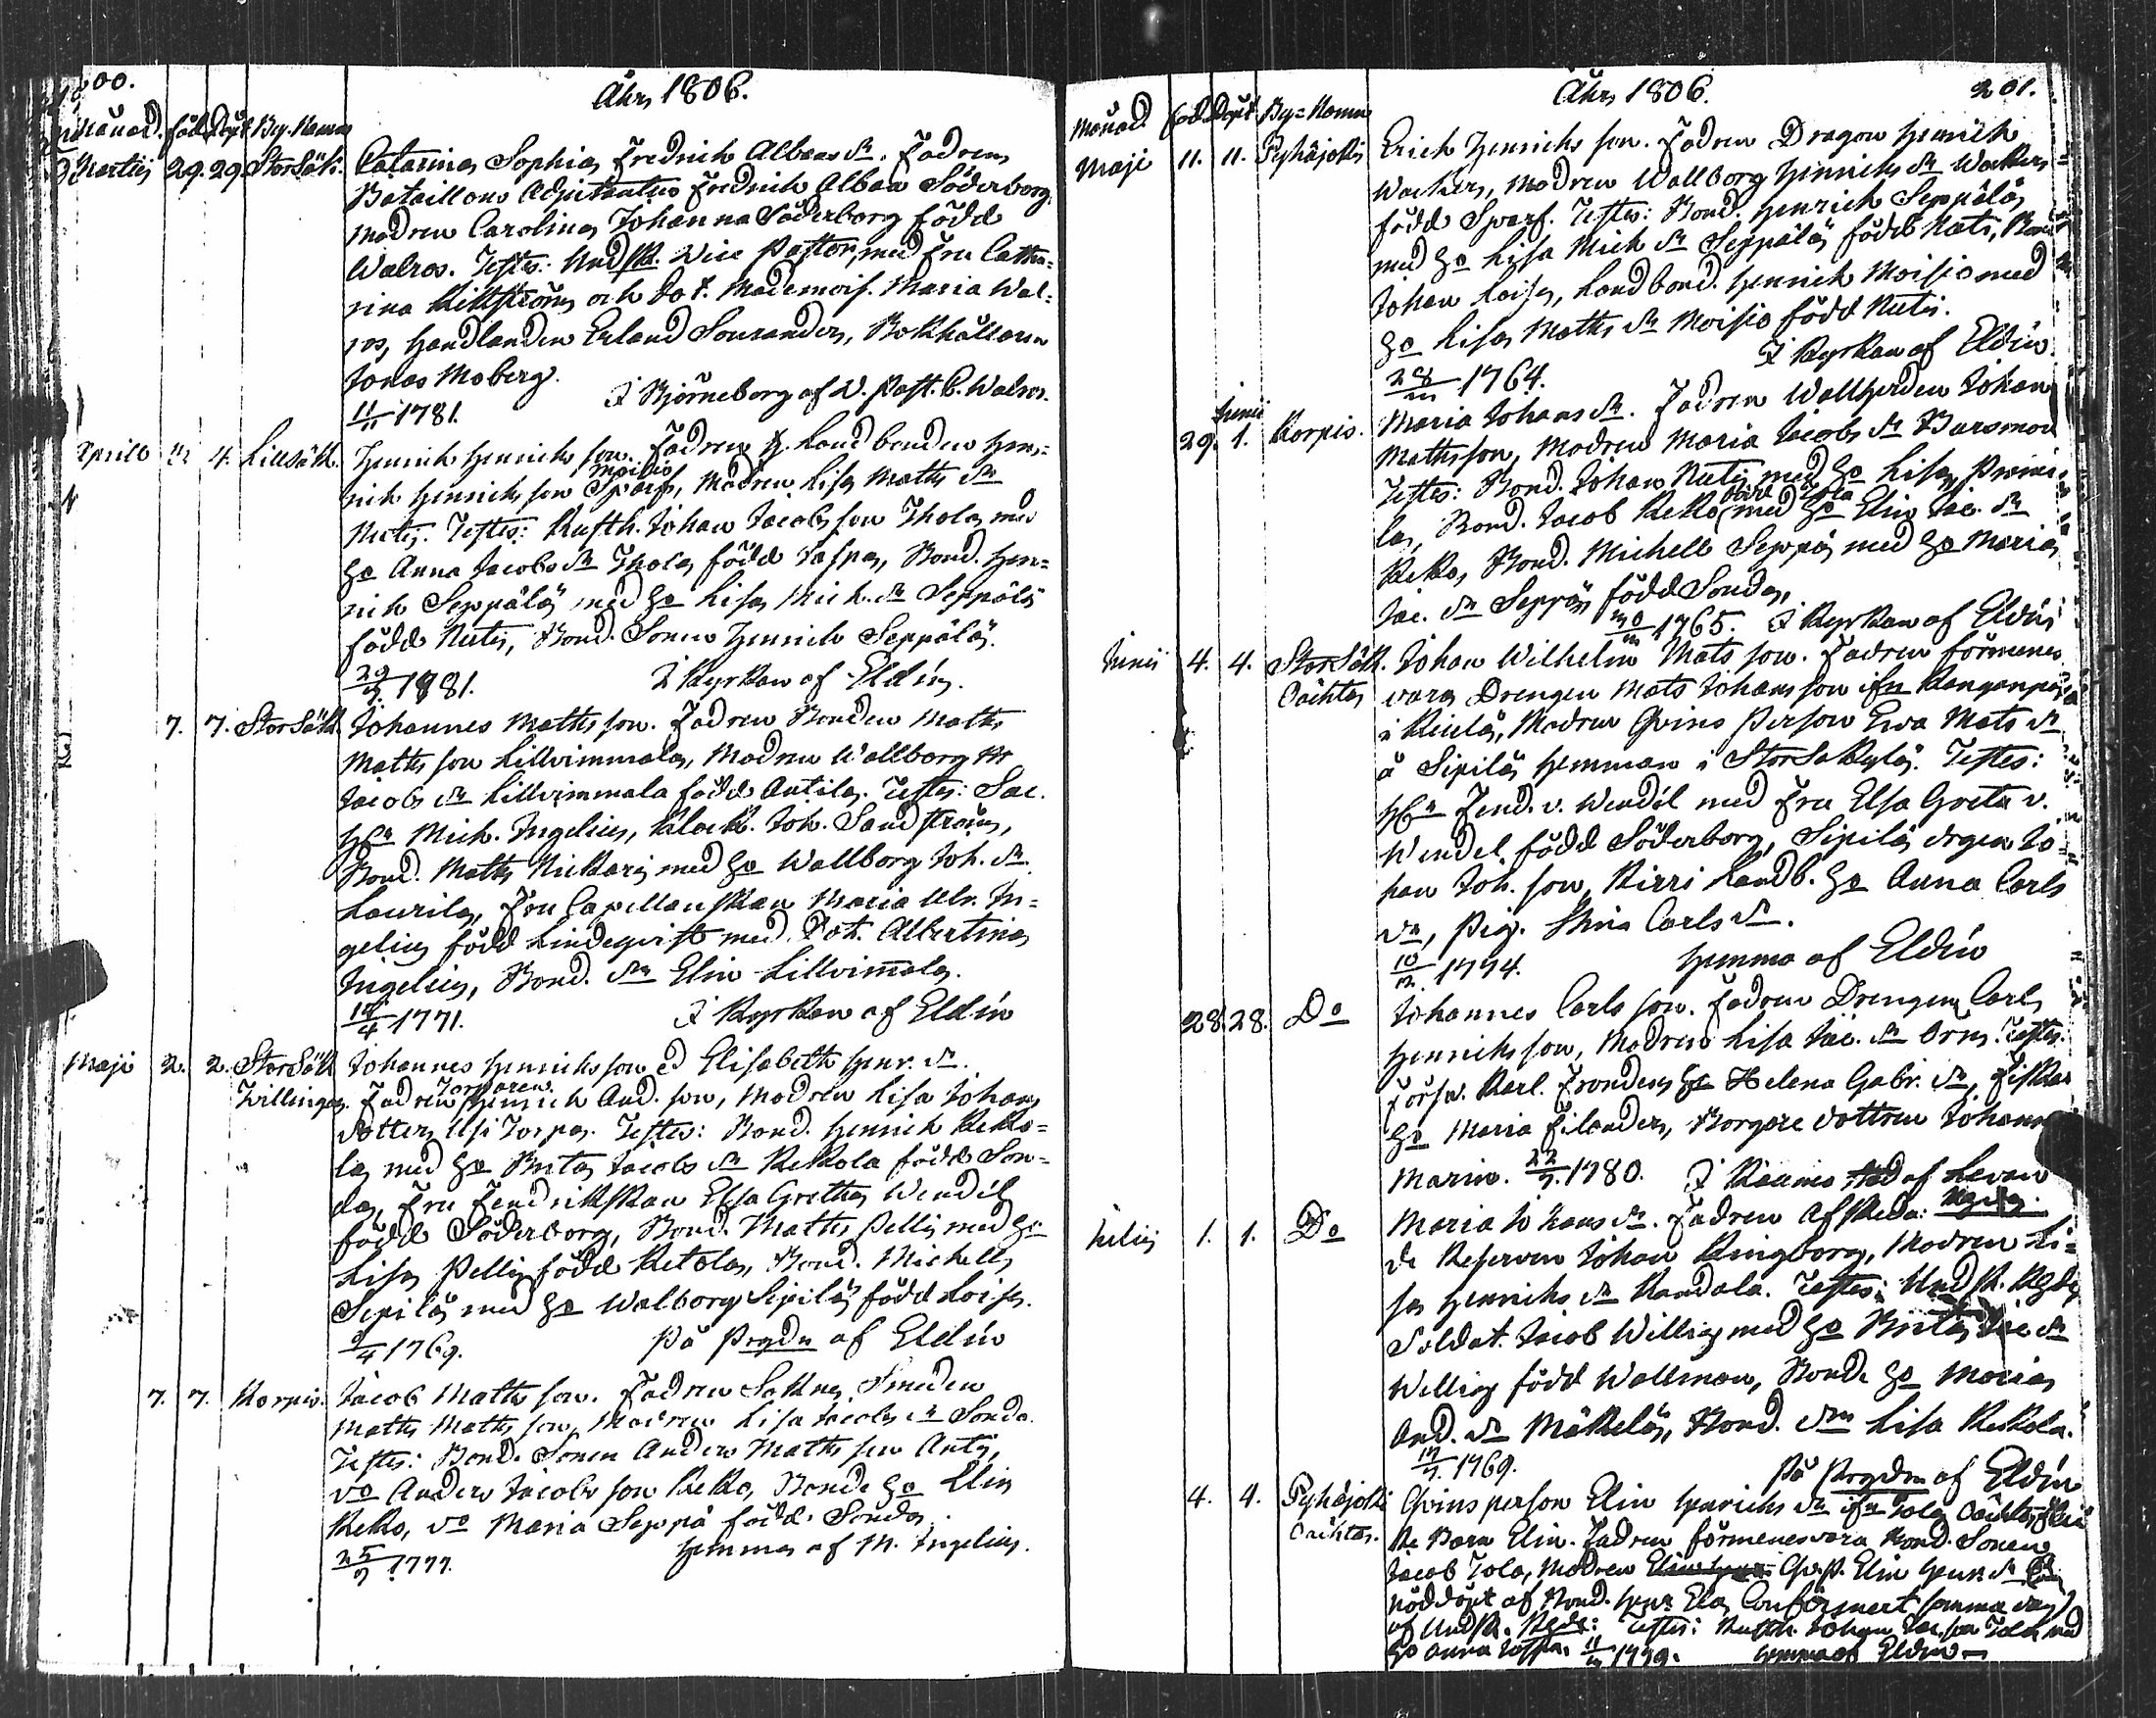 200.
Åhr 1806.
Månad. född Döpt By-Namn
Martii 29. 29. StorSäk. Catarina Sophia Fredrich Albans dr. Fadren
Bataillons Adjutanten Fredrich Alban Söderborg
modren Carolina Johanna Söderborg född
Walros. Testes: Und sk. Vice Pastor, med Fru Catha=
rina Killström och Dot. Mademois. Maria Wal=
ros, Handlanden Erland Souranders, Bokhållaren
Jonas Moberg.
11/11 1781. I Björneborg af V. Past. C. Walros.
Aprill 4. Lillsäk. Henrich Henrichs son. Fadren Landbonden Hen=
rich Henrichs son Moisio, Modren Lisa Matts dr
Neuti. Testes: Rusth. Johan Jacobs son Thola med
Ho Anna Jacobs dr Thola född Caspa, Bond. Hen=
rich Seppälä med Ho Lisa Mich. dr Seppälä
född Neuti, Bond. Sonen Henrich Seppälä.
1781. I Kyrkan af Eldín.
7. 7. StorSäk. Johannes Matts son. Fadren Bonden Matts
Matts son Lillvimmala, Modren Wallborg
Jacobs dr Lillvimmala född Antila. Testes: Sac.
Mich. Ingelius, Klock. Joh. Sandström,
Bond. Matts Nickari med Ho Wallborg Joh. dr
Laurila, Fru Capellanskan Maria Ulr. In=
gelius född Lindeqvist med Dot. Albertina
Ingelius, Bond. dr Elin Lillvimala.
1771. I Kyrkan af Eldín
Maji 2. 2. StorSäk Johannes Henrichs son & Elisabeth Henr. dr.
Tvillingar. Fadren Torparen Henrich And. son, Modren Lisa Johans
dotter Torpa. Testes: Bond. Henrich Kekko=
la med Ho Brita Jacobs dr Kekola född Son=
da, Fru Fendrickskan Elsa Gretha Wendél
född Söderborg, Bond. Matts Pelli med Ho
Lisa Pelli född Ketola, Bond. Michell
Sipilä med Ho Walborg Sipilä född Loisa.
1769. På Prgdn af Eldín
7. 7. Korpis. Jacob Matts son. Fadren Sokne Smeden
Matts Matts son, Modren Lisa Jacobs dr Sonda.
Testes: Bond. Sonen Anders Matts son Anti,
do Anders Jacobs son Keko, Bonde Ho Elin
Keko, do Maria Seppä född Sonda.
25/7 1777. Hemma af M. Ingelius.
Åhr 1806. 201.
Månad född Döpt By=Namn
Maji 11. 11. Pyhäjoki Erich Henrichs son. Fadren Dragon Henrich
Wacker, Modren Wallborg Henrichs dr Wacker
född Sparf. Testes: Bond. Henrich Seppälä
med Ho Lisa Mich dr Seppälä född Neuti, Bond
Johan Loisa, Landbond. Henrich Moisio med
Ho Lisa Matts dr Moisio född Neuti.
1764. I Kyrkan af Eldín.
29. Junii 1. Korpis. Maria Johans dr. Fadren Wallherden Johan
Mattsson, Modren Maria Jacobs dr Barsmon
Testes: Bond. Johan Neuti med Ho Lisa
la, Bond. Jacob Keko med Ho Elin Jac. dr
Keko, Bond. Michell Seppä med Ho Maria
Jac. dr Seppä född Sonda.
1765. I Kyrkan af Eldín
Junii 4. 4. StorSäk. Johan Wilhelm Mats son. Fadren förmenes
Oächta vara Drengen Mats Johans son ifrn Kanganpä
i Kiulå, Modren Qvins Person Ewa Mats dr
å Sipilä Hemman i StorSäkylä. Testes:
Fend. v. Wendél med Fru Elsa Greta v.
Wendel född Söderborg, Sipilä drgen Jo=
han Joh. son, Kirri Landb. Ho Anna Carls
dr, Pig. Stina Carls dr.
1774. Hemma af Eldín
28. 28. Do Johannes Carls son. Fadren Drengen Carl
Henrichs son, Modren Lisa Jac. dr Orm. Testes.
Försv. Karl. Fronders Ho Helena Gabr. dr, Fiskar
Ho Maria Filanders, Borgare dottren Johanna
Marin. 1780. I Raumo af Levan
Julii 1. 1. Do Maria Johans dr. Fadren Afskeda=
de Reserven Johan Ringborg, Modren Li=
sa Henrichs dr Kandola. Testes: Und sk.
Soldat. Jacob Willig med Ho Brita Jac dr
Willig född Wallman, Bonde Ho Maria
And. dr Mäkelä, Bond. dr Lisa Kekola.
1769. På Prgdn af Eldín
4. 4. Pyhäjoki Qvinsperson Elin Henrichs dr ifrn Tola Oächta
Oächta. Barn Elin. Fadren förmenes vara Bond. Sonen
Jacob Tola, Modren Qv.p. Elin Henr. dr
nöddöpt af Bond. Henr Ela, Confirmert samma dag
af Und sk. Testes: Rusth. Johan Jac. son Tola med
Ho Anna Caspa. 1779. Hemma af Eldín